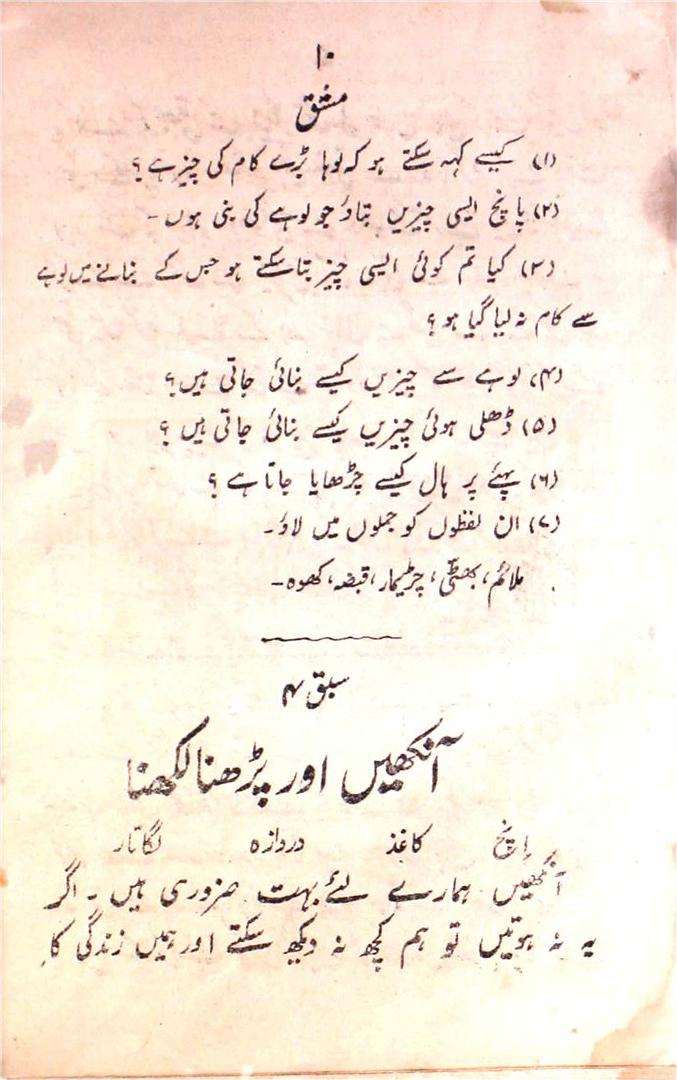 ۱۰
مشق
(۱) کیسے کہہ سکتے ہو کہ لوہا بڑے کام کی چیز ہے؟
(۲) پانچ ایسی چیزیں بتاؤ جو لوہے کی بنی ہوں۔
(۳) کیا تم کوئی ایسی چیز بتا سکتے ہو جس کے بنانے میں لوہے
سے کام نہ لیا گیا ہو؟
(۴) لوہے سے چیزیں کیسے بنائی جاتی ہیں؟
(۵) ڈھلی ہوئی چیزیں کیسے بنائی جاتی ہیں؟
(۶) پہئے پر ہال کیسے چڑھایا جاتا ہے؟
(۷) ان لفظوں کو جملوں میں لاؤ۔
ملائم، بھٹی، چڑیمار، قبضہ، کھوہ۔
سبق ۴
آنکھیں اور پڑھنا لکھنا
پانچ کاغذ دروازہ لگاتار
آنکھیں ہمارے لئے بہت ضروری ہیں۔ اگر
یہ نہ ہوتیں تو ہم کچھ نہ دیکھ سکتے اور ہمیں زندگی کا